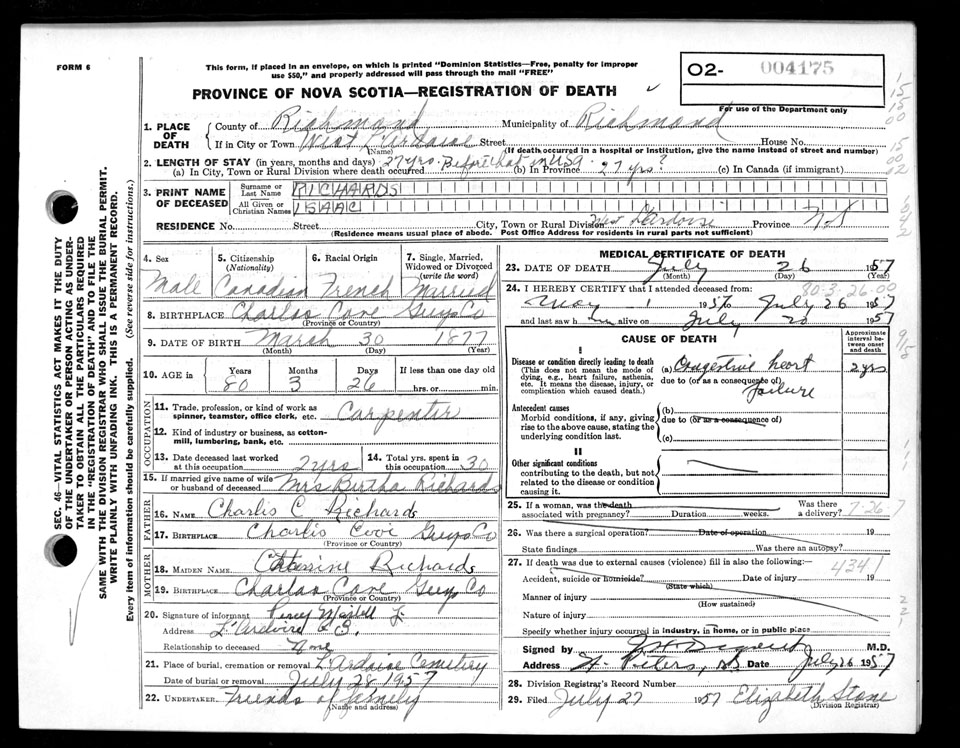 FORM 6
This form, if placed in an envelope, on which is printed "Dominion Statistics—Free, penalty for improper
use $50," and properly addressed will pass through the mail "FREE"
O2- 004175
PROVINCE OF NOVA SCOTIA—REGISTRATION OF DEATH
For use of the Department only
SEC. 46—VITAL STATISTICS ACT MAKES IT THE DUTY
OF THE UNDERTAKER OR PERSON ACTING AS UNDER-
TAKER TO OBTAIN ALL THE PARTICULARS REQUIRED
IN THE "REGISTRATION OF DEATH" AND TO FILE THE
SAME WITH THE DIVISION REGISTRAR WHO SHALL ISSUE THE BURIAL PERMIT.
WRITE PLAINLY WITH UNFADING INK. THIS IS A PERMANENT RECORD.
Every item of information should be carefully supplied. (See reverse side for instructions.)
1. PLACE OF DEATH
County of Richmond Municipality of Richmond
If in City or Town West L'Ardoise Street House No.
(Name) (If death occurred in a hospital or institution, give the name instead of street and number)
2. LENGTH OF STAY (in years, months and days) 27 yrs. Before that in USA. 27 yrs?
(a) In City, Town or Rural Division where death occurred (b) in Province (c) In Canada (if immigrant)
3. PRINT NAME OF DECEASED
Surname or Last Name RICHARDS
All Given or Christian Names ISAAC
RESIDENCE No. Street City, Town or Rural Division West L'Ardoise Province N.S
(Residence means usual place of abode. Post Office Address for residents in rural parts not sufficient)
4. Sex Male
5. Citizenship (Nationality) Canadian
6. Racial Origin French
7. Single, Married, Widowed or Divorced (write the word) Married
8. BIRTHPLACE Charlos Cove Guys Co
(Province or Country)
9. DATE OF BIRTH March 30 1877
(Month) (Day) (Year)
10. AGE in Years 80 Months 3 Days 26 If less than one day old hrs. or min.
OCCUPATION
11. Trade, profession, or kind of work as spinner, teamster, office clerk, etc. Carpenter
12. Kind of industry or business, as cotton-mill, lumbering, bank, etc.
13. Date deceased last worked at this occupation 2 yrs
14. Total yrs. spent in this occupation 30
15. If married give name of wife or husband of deceased Mrs Birtha Richards
FATHER
16. NAME Charlis C Richards
17. BIRTHPLACE Charlis Cove Guys Co
(Province or Country)
MOTHER
18. MAIDEN NAME Richards
19. BIRTHPLACE Charlos Cove Guys Co
(Province or Country)
20. Signature of informant Percy
Address L'Ardoise
Relationship to deceased None
21. Place of burial, cremation or removal L'Ardoise Cemetery
Date of burial or removal July 28 1957
22. UNDERTAKER Friends of family
(Name and address)
MEDICAL CERTIFICATE OF DEATH
23. DATE OF DEATH July 26 1957
(Month) (Day) (Year)
80-3-26-00
24. I HEREBY CERTIFY that I attended deceased from:
May 1 1956 to July 26 1957
and last saw him alive on July 20 1957
CAUSE OF DEATH
Approximate interval between onset and death
I
Disease or condition directly leading to death
(This does not mean the mode of dying, e.g., heart failure, asthenia, etc. It means the disease, injury, or complication which caused death.)
(a) Congestive heart failure 2 yrs
due to (or as a consequence of)
Antecedent causes
Morbid conditions, if any, giving rise to the above cause, stating the underlying condition last.
(b)
due to (or as a consequence of)
(c)
II
Other significant conditions
contributing to the death, but not related to the disease or condition causing it.
25. If a woman, was the death associated with pregnancy? Duration weeks. Was there a delivery? 7-26
26. Was there a surgical operation? Date of operation 19
State findings Was there an autopsy?
27. If death was due to external causes (violence) fill in also the following:— 4341
Accident, suicide or homicide? Date of injury 19
(State which)
Manner of injury
(How sustained)
Nature of injury
Specify whether injury occurred in industry, in home, or in public place
Signed by M.D.
Address St. Peters, N.S Date July 26 1957
28. Division Registrar's Record Number
29. Filed July 27 1957 Elizabeth Stone
(Division Registrar)